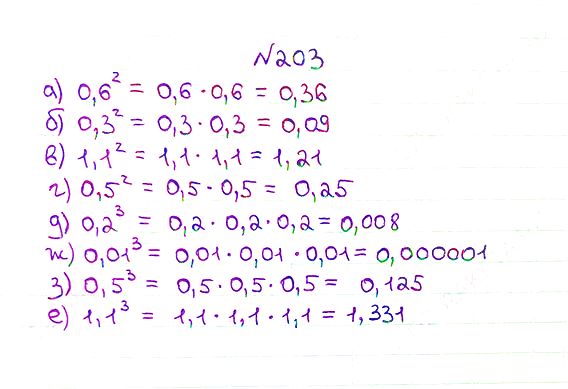 N203
а) 0,6² = 0,6 · 0,6 = 0,36
б) 0,3² = 0,3 · 0,3 = 0,09
в) 1,1² = 1,1 · 1,1 = 1,21
г) 0,5² = 0,5 · 0,5 = 0,25
д) 0,2³ = 0,2 · 0,2 · 0,2 = 0,008
ж) 0,01³ = 0,01 · 0,01 · 0,01 = 0,000001
з) 0,5³ = 0,5 · 0,5 · 0,5 = 0,125
е) 1,1³ = 1,1 · 1,1 · 1,1 = 1,331